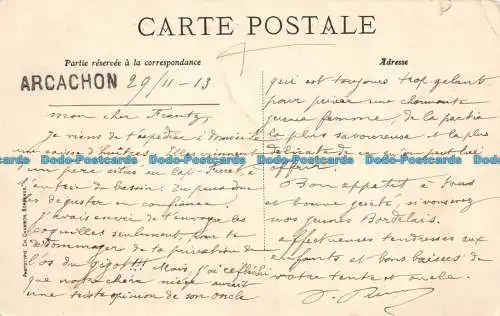 CARTE POSTALE
Partie réservée à la correspondance
Adresse
ARCACHON 29/11-13
mon cher Frantz,
Je viens de t'expédier à domicile
une caisse d'huîtres. Elles viennent
d'un parc situé au Cap-Ferret, à
du besoin. Tu peux donc
les déguster en confiance.
J'avais envie de t'envoyer les
coquilles seulement, pour te
dédommager de la privation de
l'os du gigot!!! Mais, j'ai réfléchi
que notre chère nièce aurait
une triste opinion de son oncle
qui est toujours trop galant
pour priver une charmante
jeune femme, de la partie
la plus savoureuse et la plus
délicate de ce qu'on peut lui
offrir.
Bon appétit à vous
et bonne gaieté, si vous avez
nos jeunes Bordelais.
affectueuses tendresses aux
enfants et bons baisers de
votre tante et oncle.
Dodo-Postcards Dodo-Postcards Dodo-Postcards Dodo-Postcards Dodo-Postcards